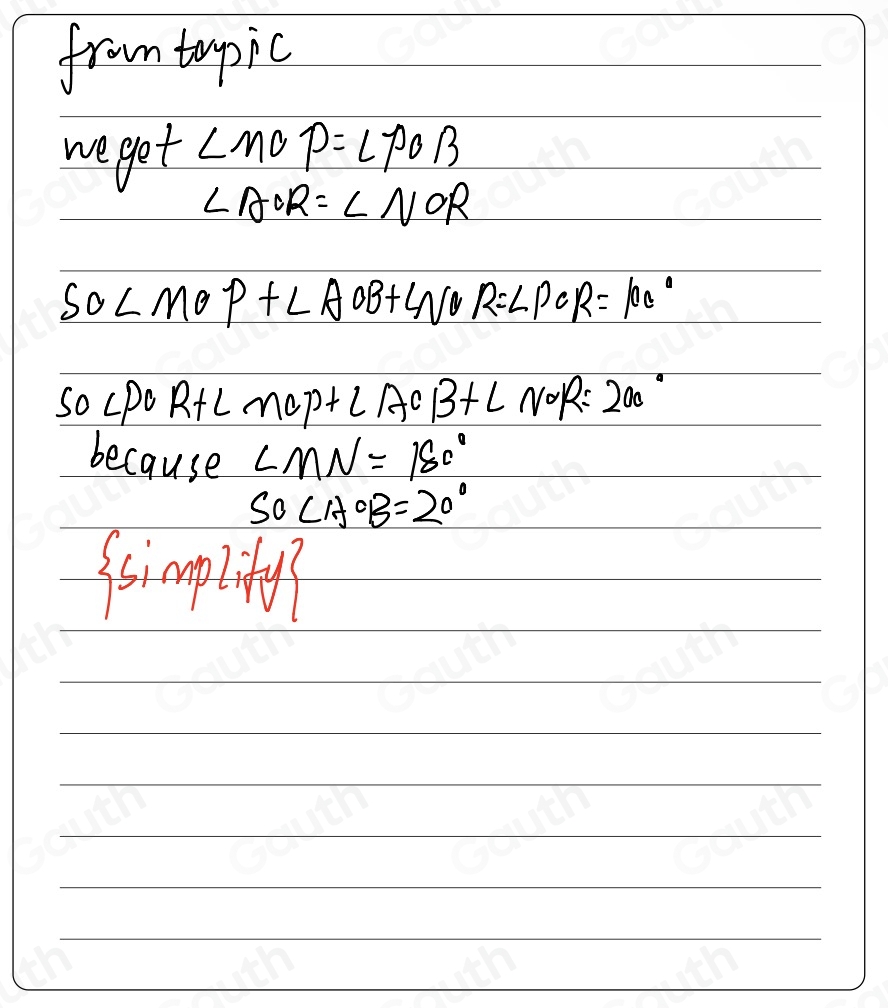 from topic
we get ∠MOP=∠POB
∠AOR=∠NOR
so ∠MOP+∠AOB+∠NOR=∠POR=100°
so ∠POR+∠MOP+∠AOB+∠NOR=200°
because ∠MN=180°
so ∠AOB=20°
{simplify}